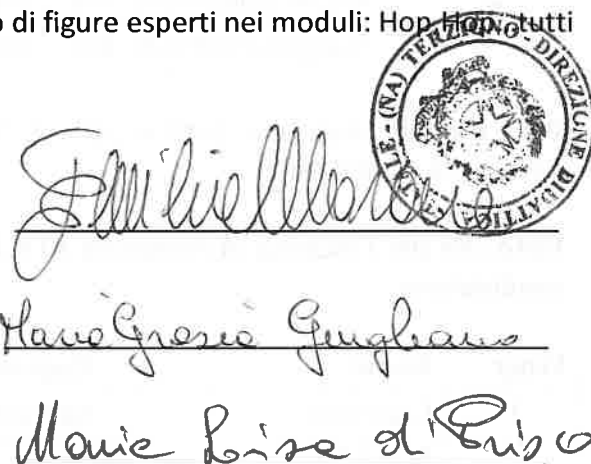 o di figure esperti nei moduli: Hop Hop, tutti
TERZIGNO - DIREZIONE DIDATTICA STATALE - (NA)
Maria Grazia
Maria Luisa di Prisco